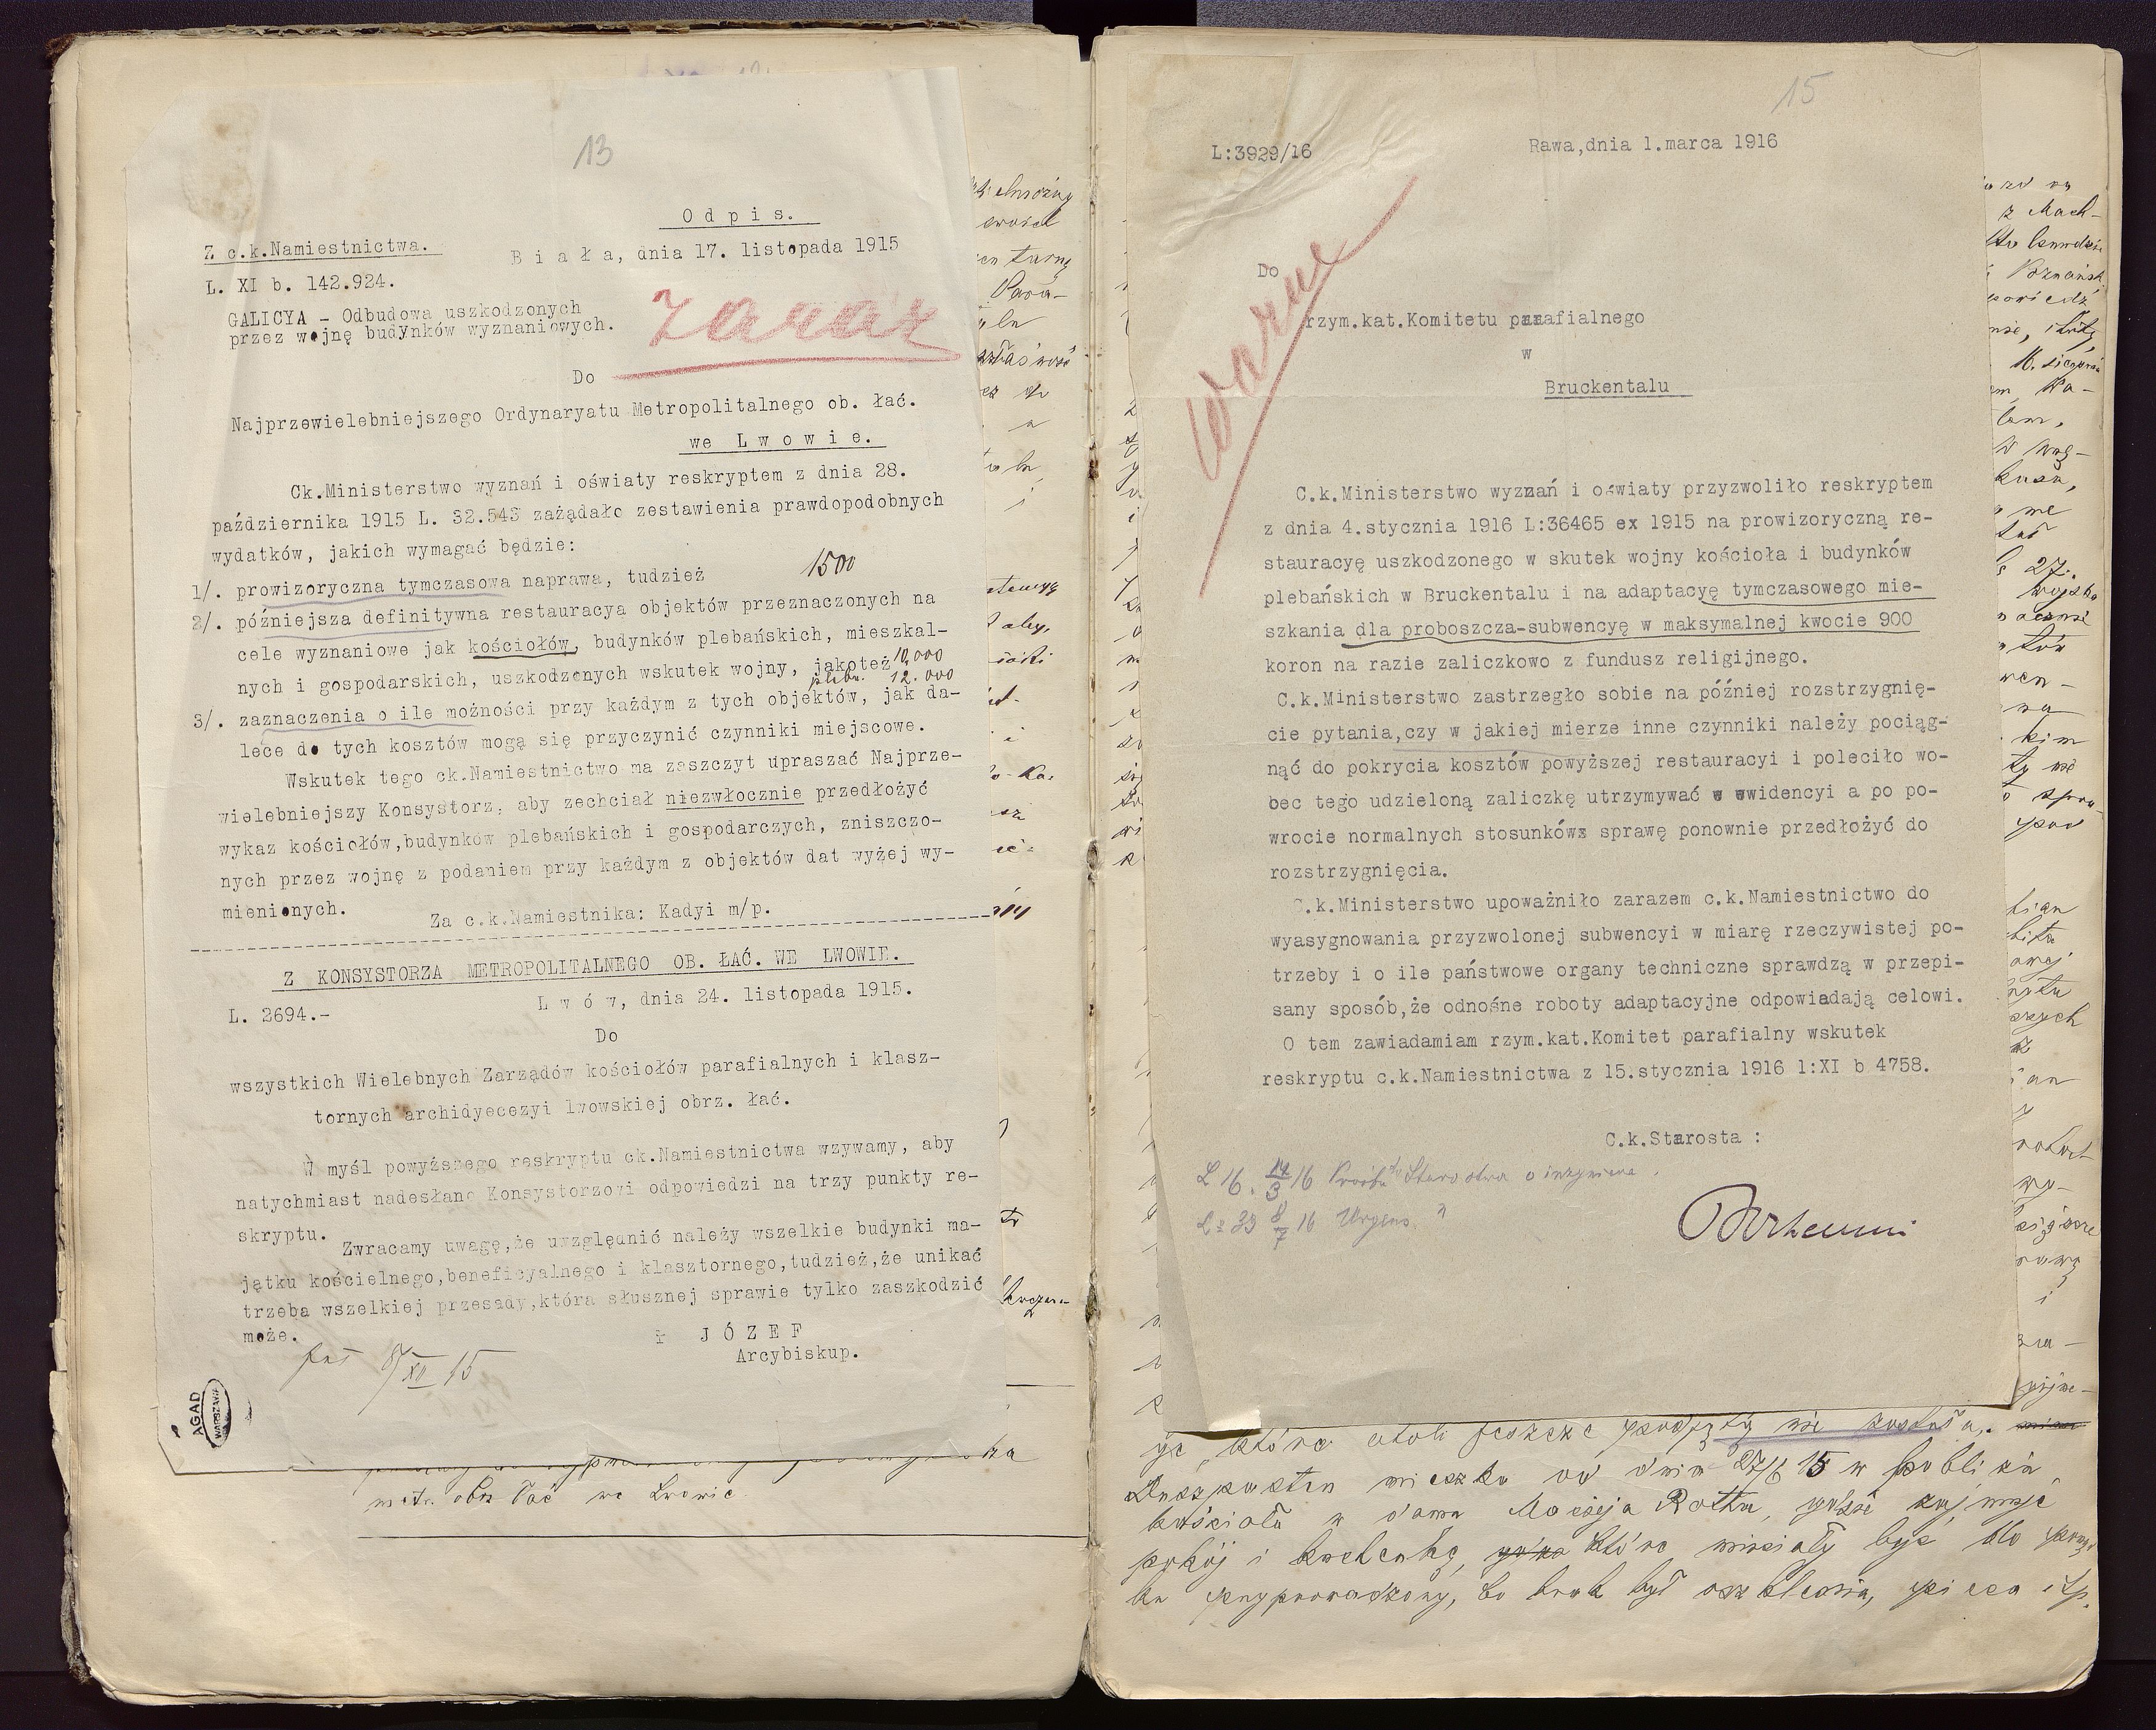 13
Odpis.
Z c.k.Namiestnictwa.
Biała, dnia 17. listopada 1915
L. XI b. 142.924.
GALICYA - Odbudowa uszkodzonych
przez wojnę budynków wyznaniowych.
Zaraz
Do
Najprzewielebniejszego Ordynaryatu Metropolitalnego ob. łać.
we Lwowie.
Ck.Ministerstwo wyznań i oświaty reskryptem z dnia 28.
października 1915 L. 32.543 zażądało zestawienia prawdopodobnych
wydatków, jakich wymagać będzie:
1500
1/. prowizoryczna tymczasowa naprawa, tudzież
2/. późniejsza definitywna restauracya objektów przeznaczonych na
cele wyznaniowe jak kościołów, budynków plebańskich, mieszkal-
nych i gospodarskich, uszkodzonych wskutek wojny, jakoteż 10,000
pleban. 12.000
3/. zaznaczenia o ile możności przy każdym z tych objektów, jak da-
lece do tych kosztów mogą się przyczynić czynniki miejscowe.
Wskutek tego ck.Namiestnictwo ma zaszczyt upraszać Najprze-
wielebniejszy Konsystorz, aby zechciał niezwłocznie przedłożyć
wykaz kościołów,budynków plebańskich i gospodarczych, zniszczo-
nych przez wojnę z podaniem przy każdym z objektów dat wyżej wy-
mienionych.
Za c.k.Namiestnika: Kadyi m/p.
Z KONSYSTORZA METROPOLITALNEGO OB. ŁAĆ. WE LWOWIE.
L. 2694.-
Lwów, dnia 24. listopada 1915.
Do
wszystkich Wielebnych Zarządów kościołów parafialnych i klasz-
tornych archidyecezyi lwowskiej obrz. łać.
W myśl powyższego reskryptu ck.Namiestnictwa wzywamy, aby
natychmiast nadesłano Konsystorzowi odpowiedzi na trzy punkty re-
skryptu.
Zwracamy uwagę,że uwzględnić należy wszelkie budynki ma-
jątku kościelnego,beneficyalnego i klasztornego,tudzież,że unikać
trzeba wszelkiej przesady,która słusznej sprawie tylko zaszkodzić
może.
† JÓZEF
Arcybiskup.
8/XII 15
AGAD
WARSZAWA
metr. obrz łać we Lwowie
15
L:3929/16
Rawa,dnia 1.marca 1916
Ważne
Do
rzym.kat.Komitetu parafialnego
w
Bruckentalu
C.k.Ministerstwo wyznań i oświaty przyzwoliło reskryptem
z dnia 4.stycznia 1916 L:36465 ex 1915 na prowizoryczną re-
stauracyę uszkodzonego w skutek wojny kościoła i budynków
plebańskich w Bruckentalu i na adaptacyę tymczasowego mie-
szkania dla proboszcza-subwencyę w maksymalnej kwocie 900
koron na razie zaliczkowo z fundusz religijnego.
C.k.Ministerstwo zastrzegło sobie na później rozstrzygnię-
cie pytania,czy w jakiej mierze inne czynniki należy pociąg-
nąć do pokrycia kosztów powyższej restauracyi i poleciło wo-
bec tego udzieloną zaliczkę utrzymywać w ewidencyi a po po-
wrocie normalnych stosunków sprawę ponownie przedłożyć do
rozstrzygnięcia.
C.k.Ministerstwo upoważniło zarazem c.k.Namiestnictwo do
wyasygnowania przyzwolonej subwencyi w miarę rzeczywistej po-
trzeby i o ile państwowe organy techniczne sprawdzą w przepi-
sany sposób,że odnośne roboty adaptacyjne odpowiadają celowi.
O tem zawiadamiam rzym.kat.Komitet parafialny wskutek
reskryptu c.k.Namiestnictwa z 15.stycznia 1916 l:XI b 4758.
C.k.Starosta :
L 16. 14/3 16 Prośba do Starostwa o inżyniera.
L: 39 8/7 16 Urgens. "
ja, która atoli jeszcze podjętą nie została.
Duszpasterz mieszka od dnia 27/6 15 w pobliżu
kościoła w domu Macieja Rotha, gdzie zajmuje
pokój i kuchenkę, które musiały być do porząd
ku przyprowadzony, bo brak był oszklenia, pieca itp.